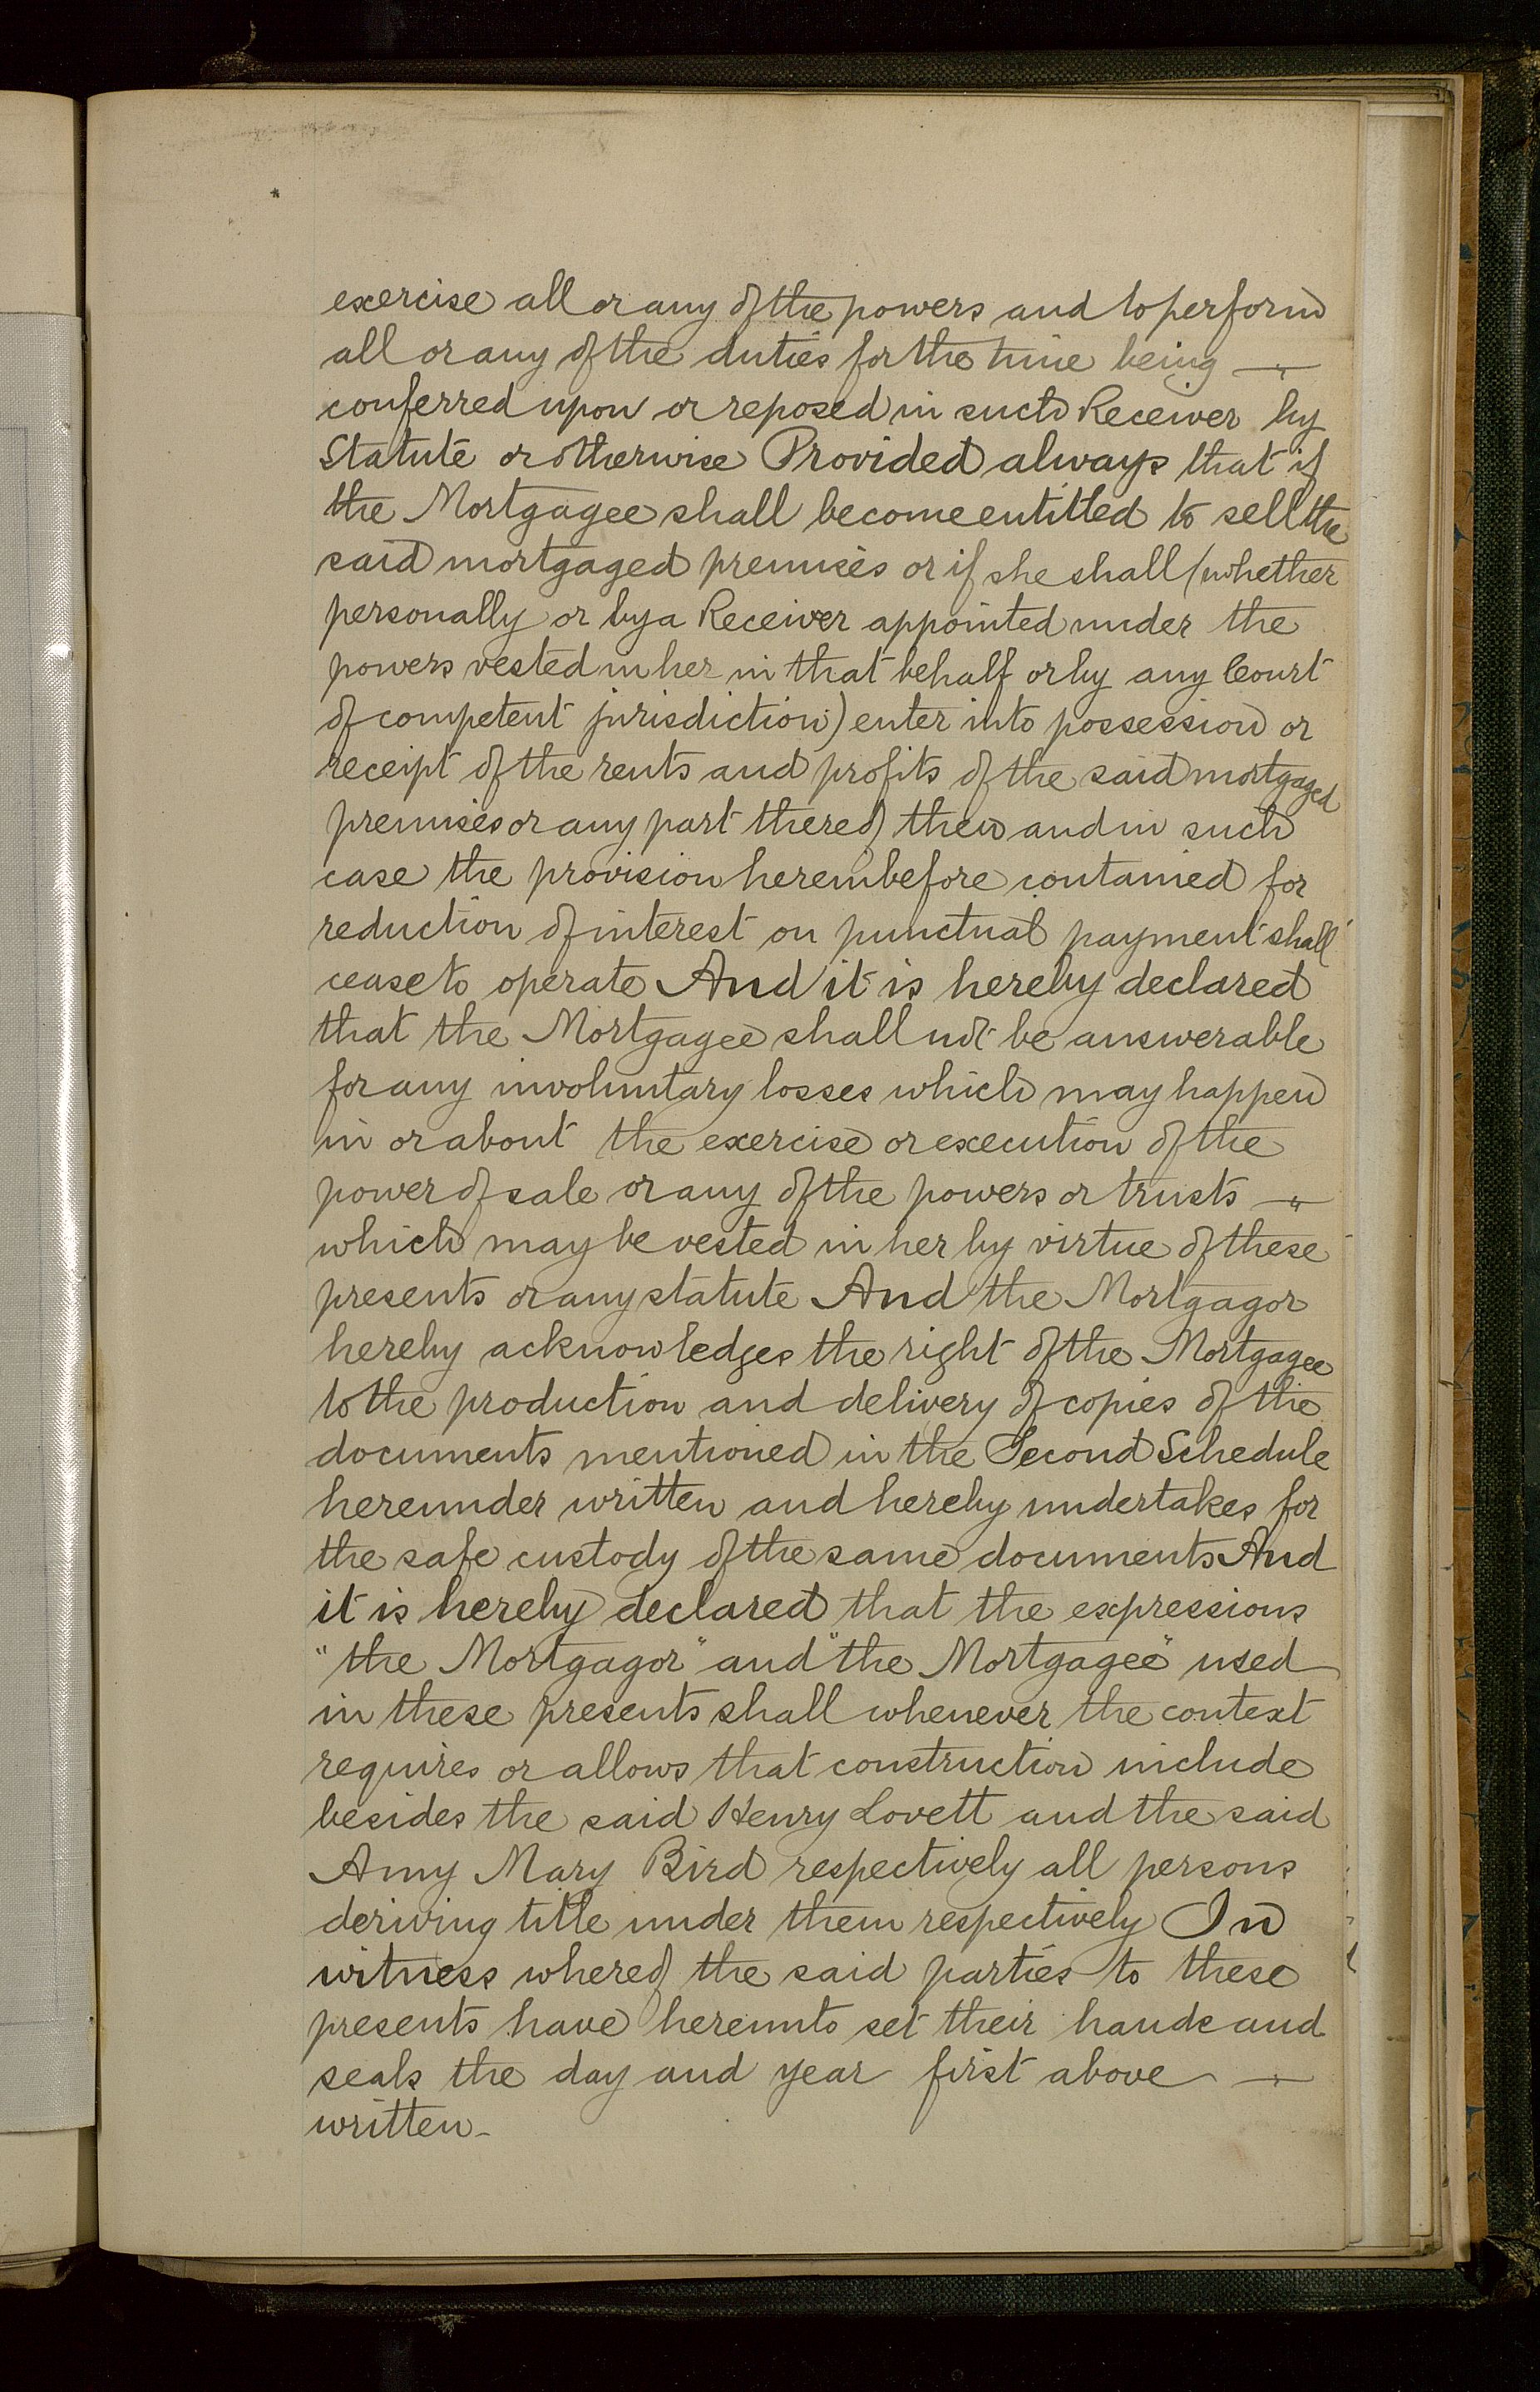 exercise all or any of the powers and to perform
all or any of the duties for the time being —
conferred upon or reposed in such Receiver by
Statute or otherwise Provided always that if
the Mortgagee shall become entitled to sell the
said mortgaged premises or if she shall (whether
personally or by a Receiver appointed under the
powers vested in her in that behalf or by any Court
of competent jurisdiction) enter into possession or
receipt of the rents and profits of the said mortgaged
premises or any part thereof then and in such
case the provision hereinbefore contained for
reduction of interest on punctual payment shall
cease to operate And it is hereby declared
that the Mortgagee shall not be answerable
for any involuntary losses which may happen
in or about the exercise or execution of the
power of sale or any of the powers or trusts —
which may be vested in her by virtue of these
presents or any statute And the Mortgagor
hereby acknowledges the right of the Mortgagee
to the production and delivery of copies of the
documents mentioned in the Second Schedule
hereunder written and hereby undertakes for
the safe custody of the same documents And
it is hereby declared that the expressions
"the Mortgagor" and "the Mortgagee" used
in these presents shall whenever the context
requires or allows that construction include
besides the said Henry Lovett and the said
Amy Mary Bird respectively all persons
deriving title under them respectively In
witness whereof the said parties to these
presents have hereunto set their hands and
seals the day and year first above —
written.